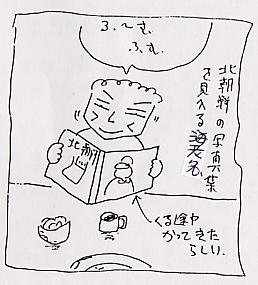 う、〜む。
ふむ。
北朝鮮の写真集
を見入る海老名
北朝
くる途中
かってきた
らしい。